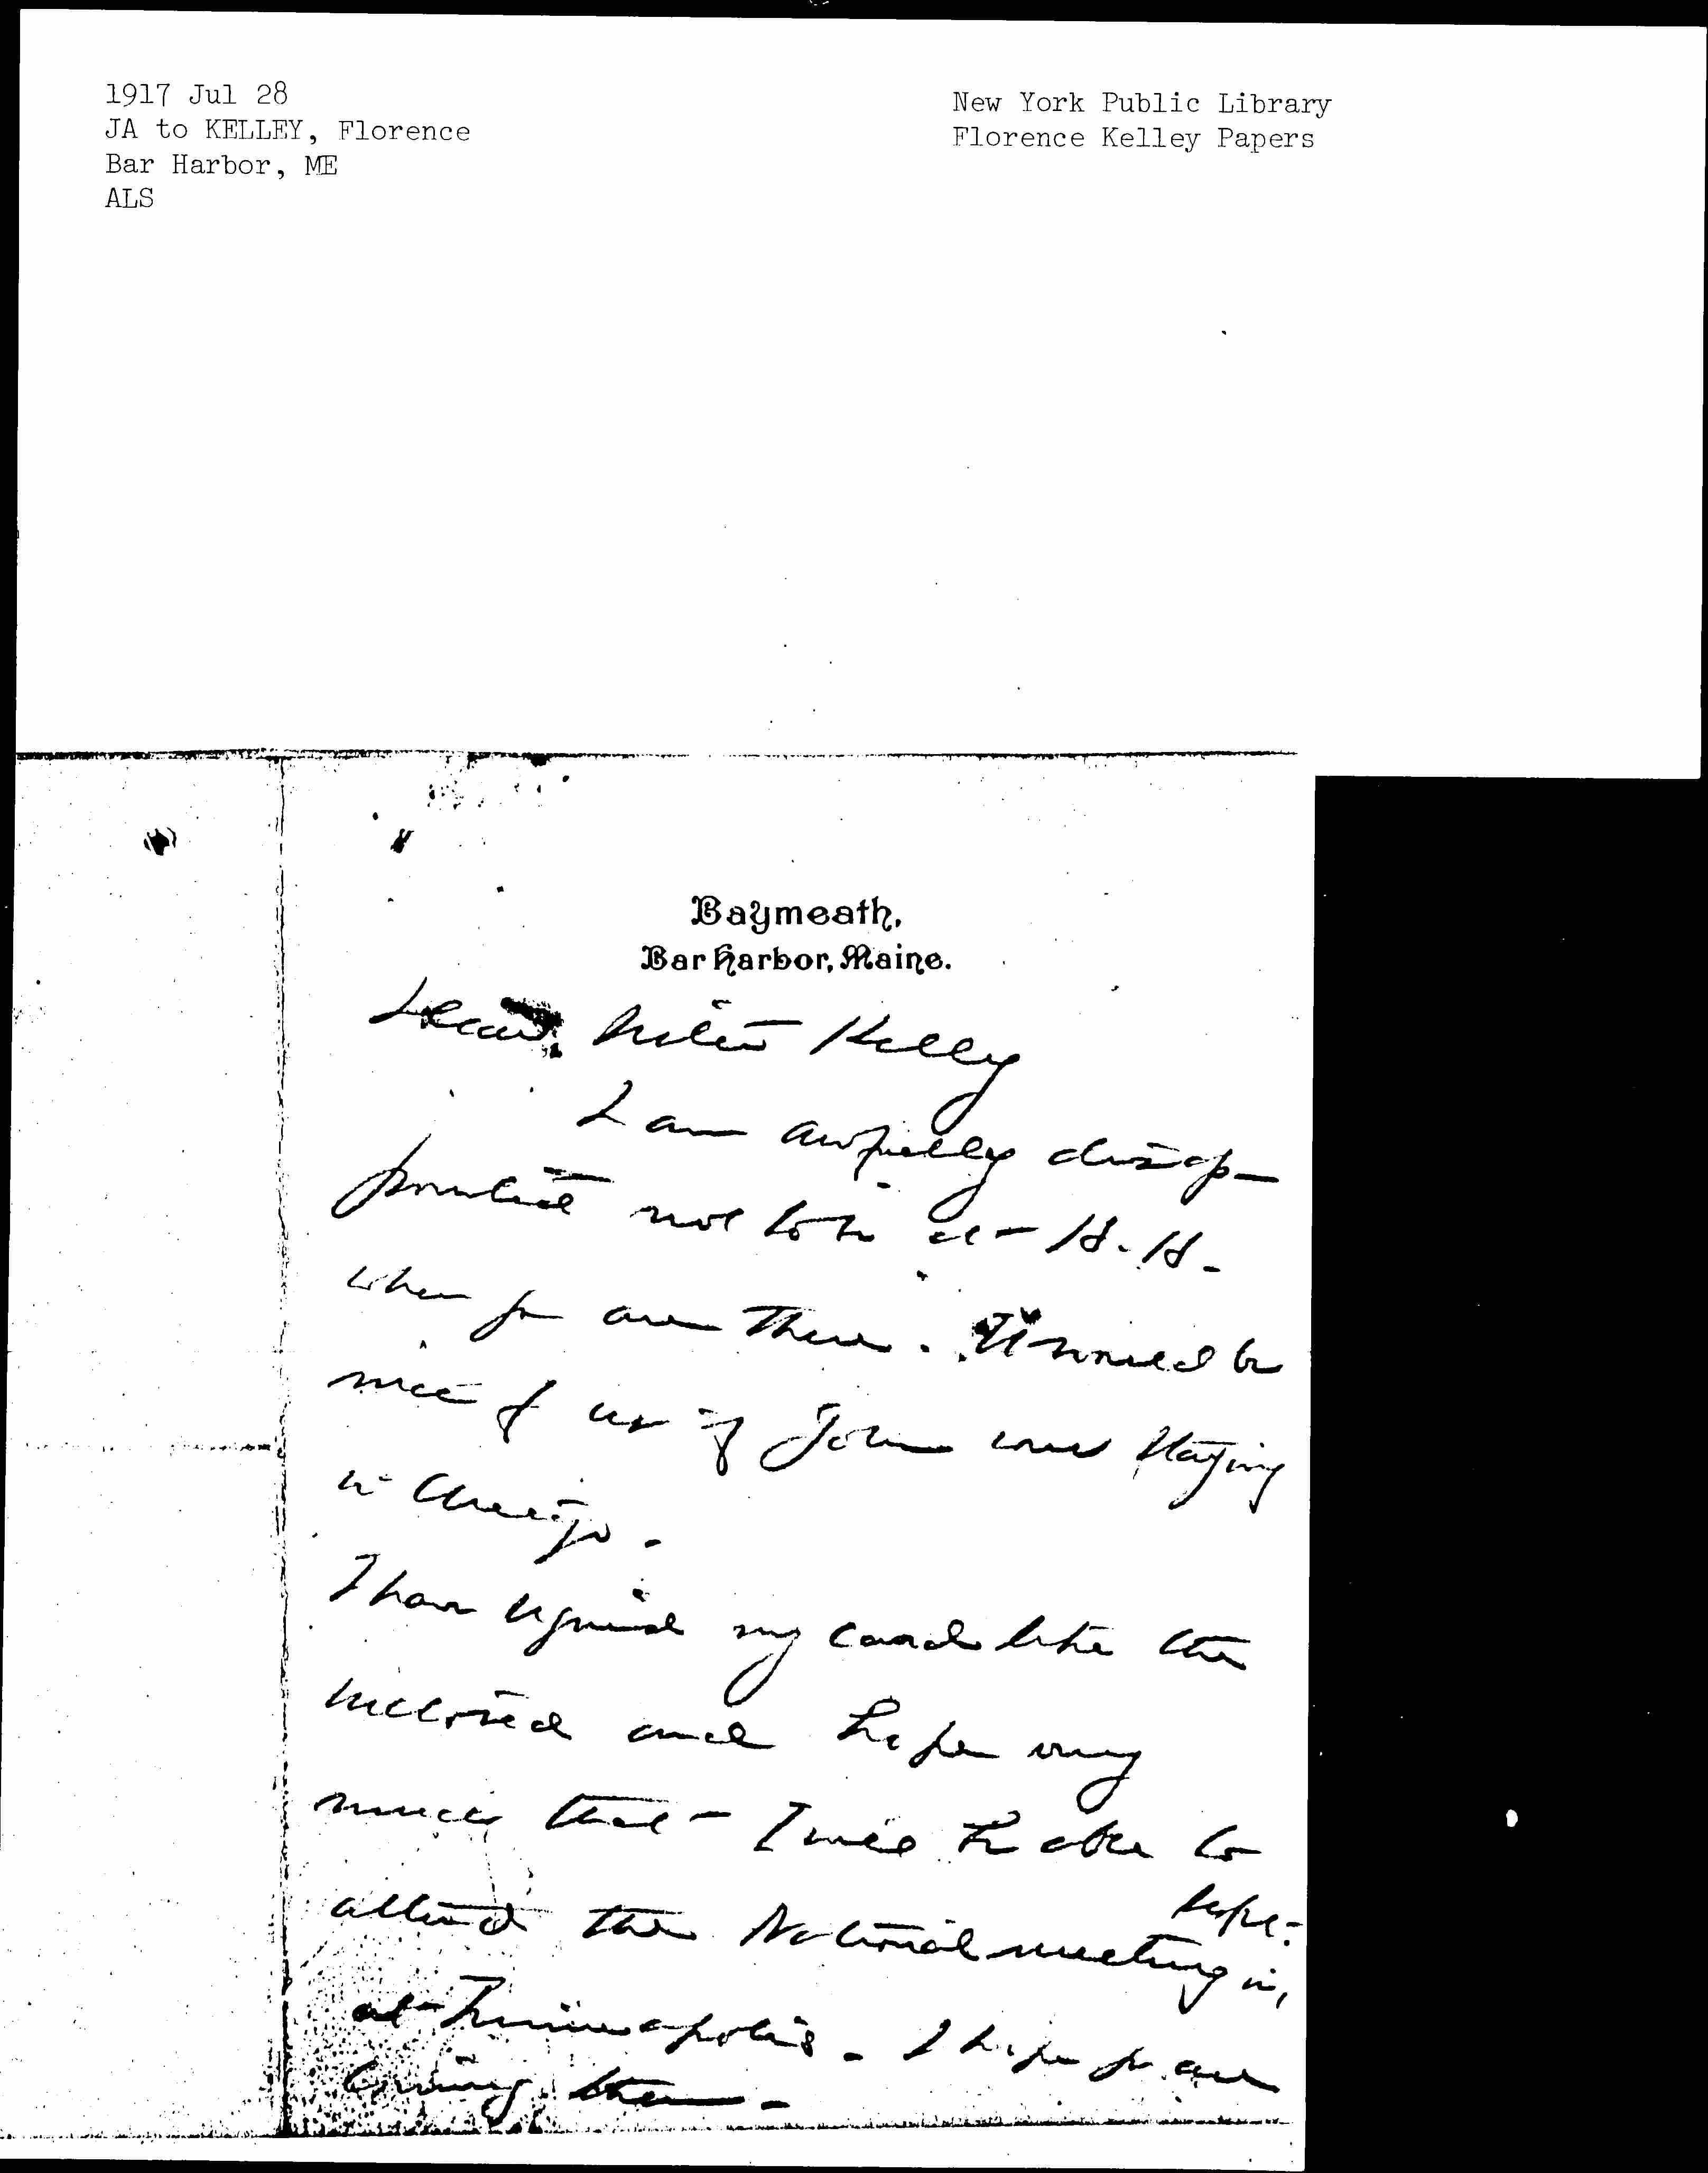 1917 Jul 28
JA to KELLEY, Florence
Bar Harbor, ME
ALS
New York Public Library
Florence Kelley Papers
Baymeath,
Bar Harbor, Maine.
Dear Sister Kelley
I am awfully disap-
pointed not to be at H. H.
when you are there. It would be
nice if John was staying
in Chicago.
I have signed my card like the
inclosed and hope very
much that I will be able to
attend the National meeting in Sept.
at Minneapolis. I hope you are
coming then.